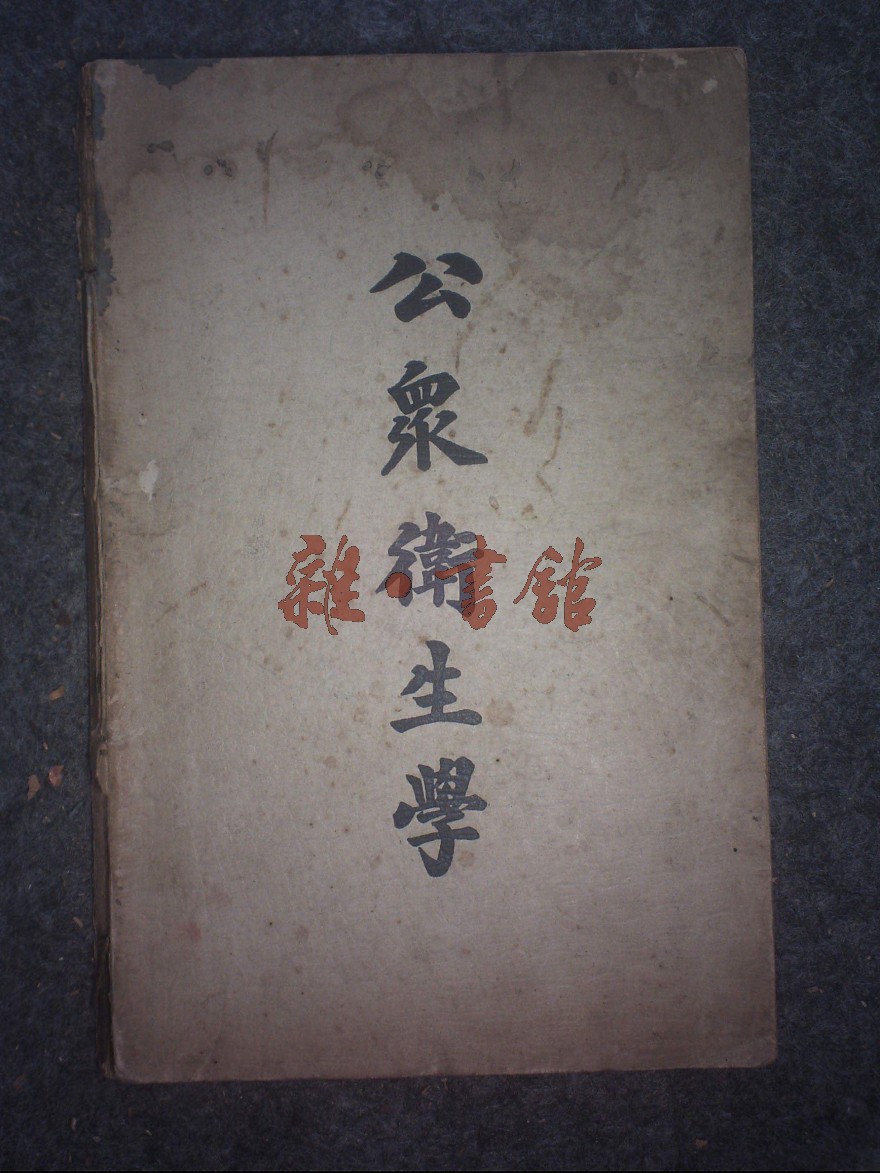 公眾衛生學
雜·書館